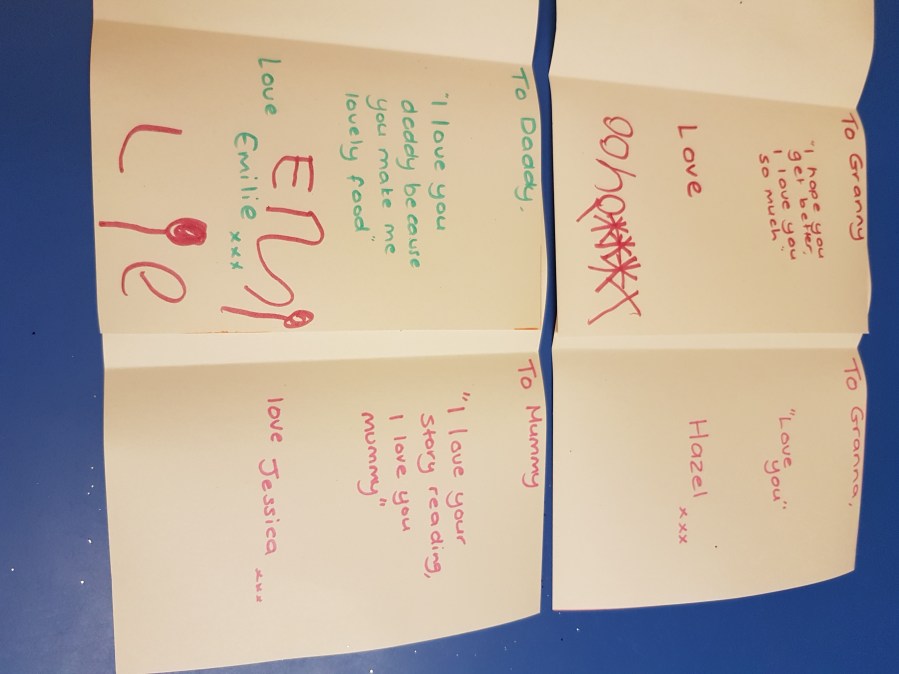 To Granny
"I hope you
get better,
I love you
so much"
Love
To Granna,
"Love
you"
Hazel xxx
To Daddy,
"I love you
daddy because
you make me
lovely food"
EMi
Love Emilie xxx
Lie
To Mummy
"I love your
story reading,
I love you
mummy"
love Jessica xxx